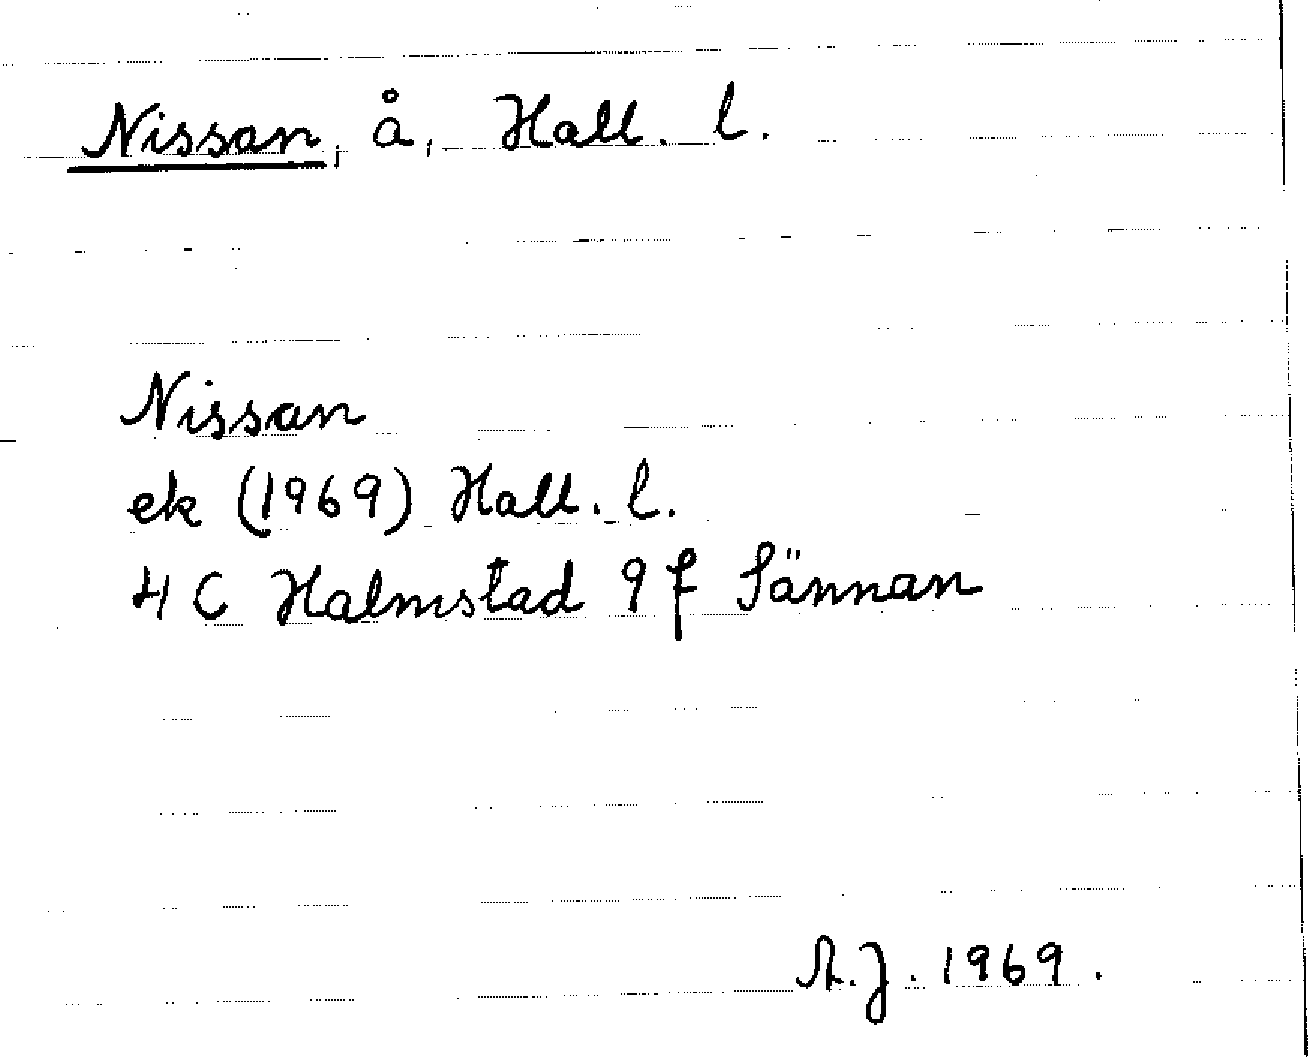 Nissan, å, Hall. l.
Nissan
ek (1969) Hall. l.
4 C Halmstad 9 f Sännan
A.J. 1969.